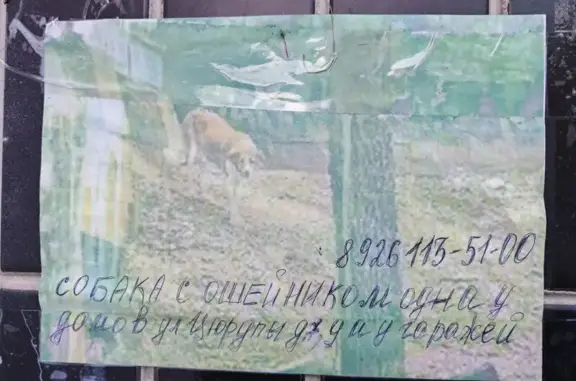 8926 113-51-00
СОБАКА С ОШЕЙНИКОМ одна у
домов ул Цюрупы и у гаражей